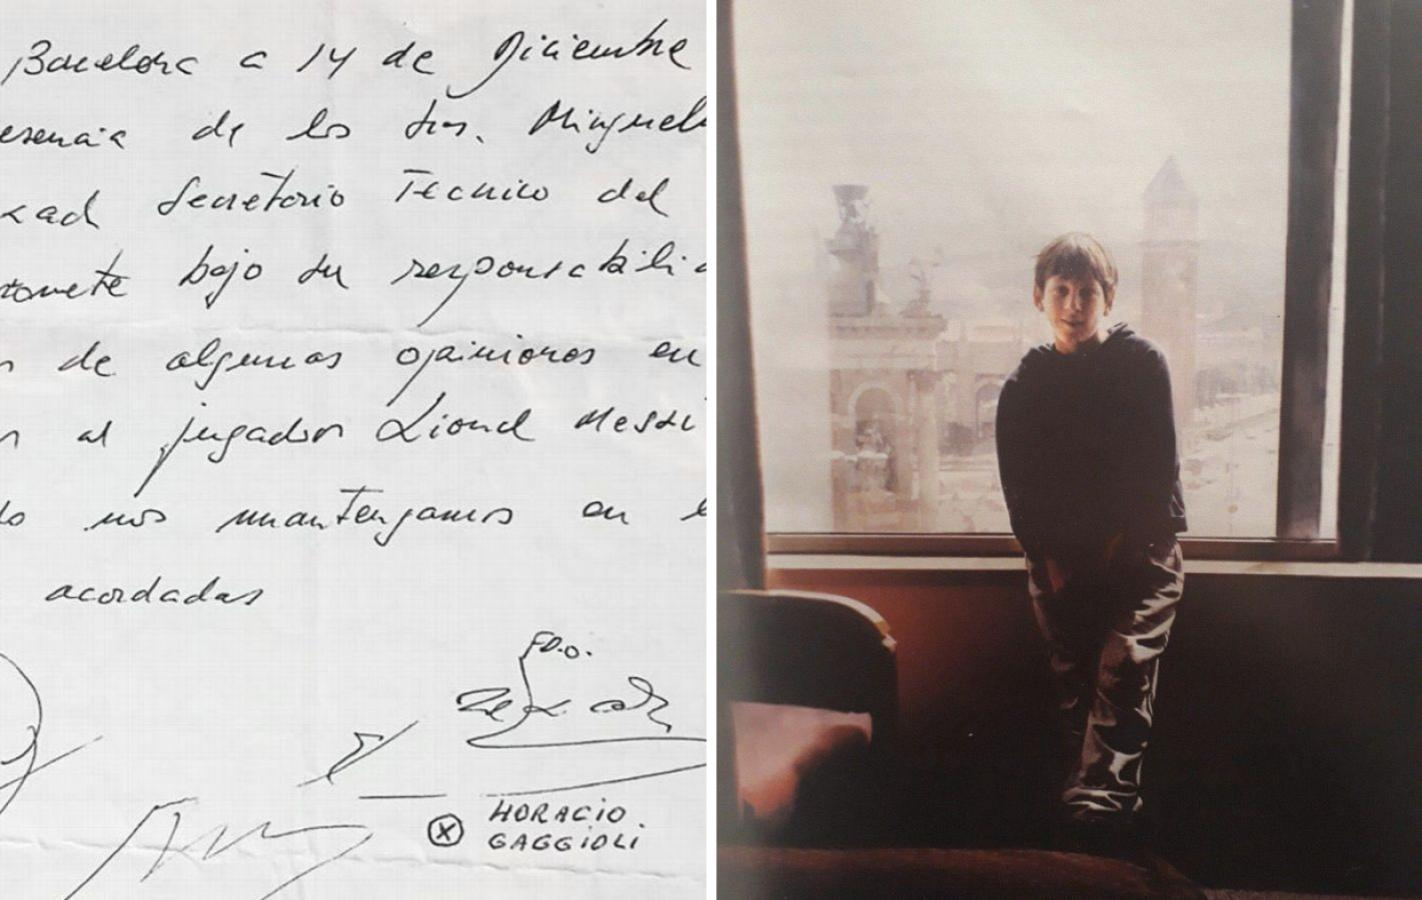 Barcelona a 14 de Diciembre
esencia de los Srs. Minguel
xad Secretario Tecnico del
omete bajo su responsabili
de algunas opiniones en
al jugador Lionel Messi
nos mantengamos en
acordadas
FDO.
HORACIO
GAGGIOLI